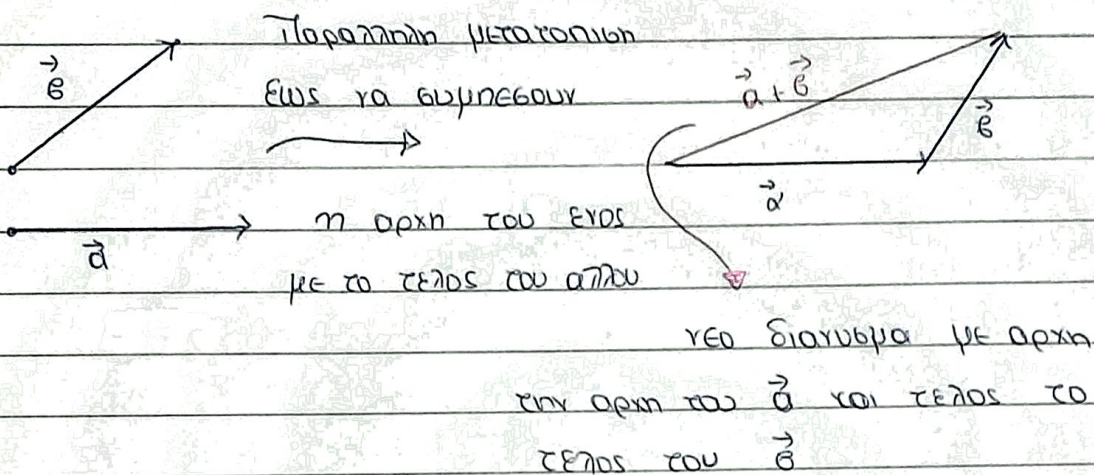 Παραλληλη μετατοπιση
β⃗
εως να συμπεσουν
α⃗ + β⃗
β⃗
α⃗
η αρχη του ενος
α⃗
με το τελος του αλλου
νεο διανυσμα με αρχη
την αρχη του α⃗ και τελος το
τελος του β⃗